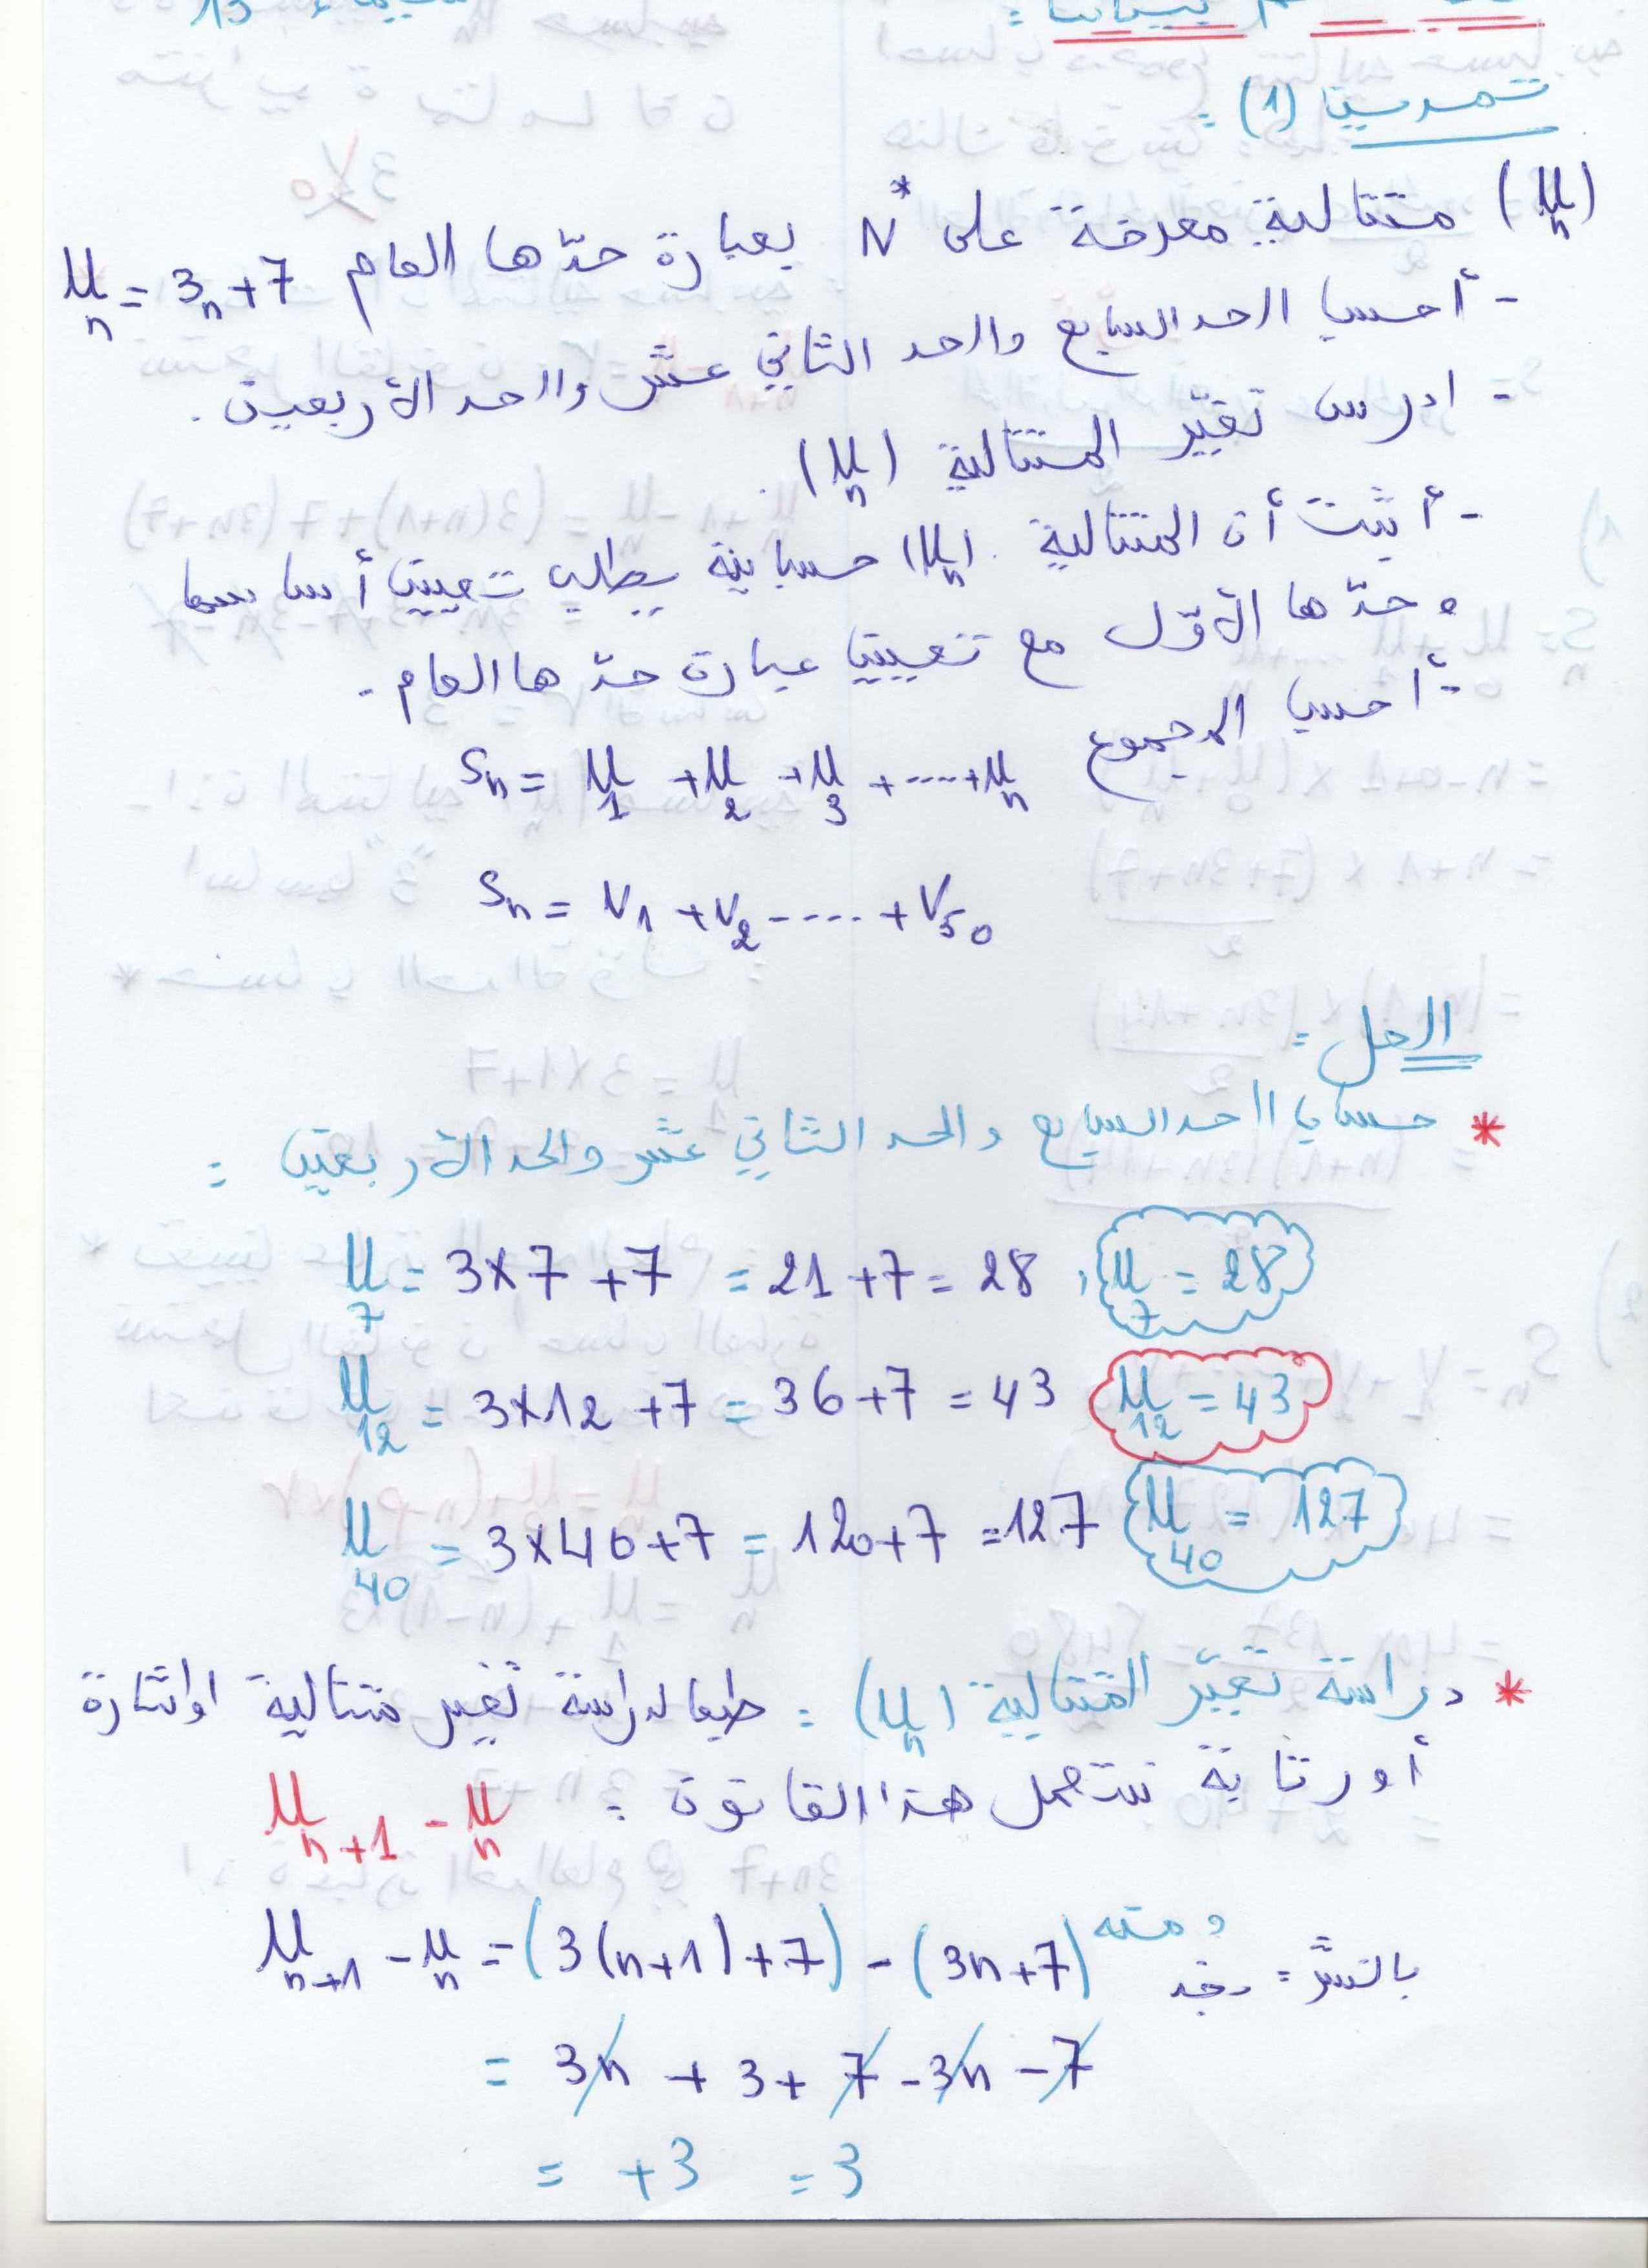 تمرين (1) :
(Uₙ) متتالية معرفة على N* بعبارة حدّها العام Uₙ = 3n+7
- أحسب الحد السابع والحد الثاني عشر والحد الأربعين .
- ادرس تغيّر المتتالية (Uₙ) .
- أثبت أن المتتالية (Uₙ) حسابية يطلب تعيين أساسها
و حدّها الأوّل مع تعيين عبارة حدّها العام .
- أحسب المجموع
Sₙ = U₁ + U₂ + U₃ + ---- + Uₙ
Sₙ = V₁ + V₂ ---- + V₅₀
الحل :
* حساب الحد السابع والحد الثاني عشر والحد الأربعين :
U₇ = 3×7 +7 = 21+7 = 28 , U₇ = 28
U₁₂ = 3×12 +7 = 36+7 = 43 U₁₂ = 43
U₄₀ = 3×40+7 = 120+7 = 127 U₄₀ = 127
* دراسة تغيّر المتتالية (Uₙ) : طبعا لدراسة تغير متتالية او اشارة
أو رتابة نستعمل هذا القانون : Uₙ₊₁ - Uₙ
و منه
بالنشر : نجد Uₙ₊₁ - Uₙ = (3(n+1)+7) - (3n+7)
= 3n + 3 + 7 - 3n - 7
= +3 = 3